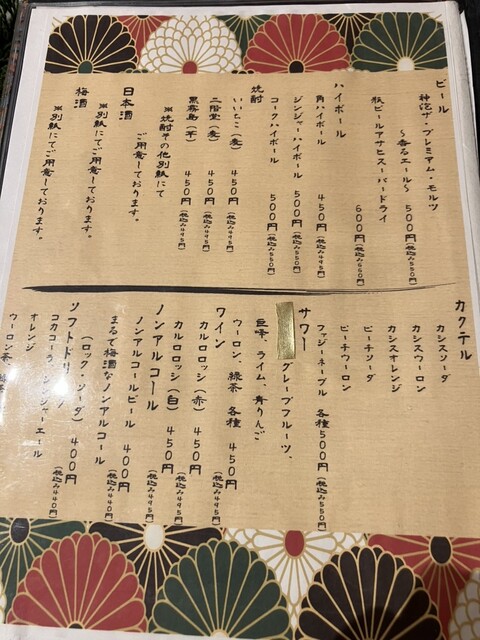 ビール
神泡ザ・プレミアム・モルツ
～香るエール～ 500円(税込み550円)
瓶ビールアサヒスーパードライ
600円(税込み660円)
ハイボール
角ハイボール 450円(税込み495円)
ジンジャーハイボール 500円(税込み550円)
コークハイボール 500円(税込み550円)
焼酎
いいちこ(麦) 450円(税込み495円)
二階堂(麦) 450円(税込み495円)
黒霧島(芋) 450円(税込み495円)
※焼酎その他別紙にて
ご用意しております。
日本酒
※別紙にてご用意しております。
梅酒
※別紙にてご用意しております。
カクテル
カシスソーダ
カシスウーロン
カシスオレンジ
ピーチソーダ
ピーチウーロン
ファジーネーブル 各種500円(税込み550円)
サワー
グレープフルーツ、
巨峰、ライム、青りんご
ウーロン、緑茶 各種 450円(税込み495円)
ワイン
カルロロッシ(赤) 450円(税込み495円)
カルロロッシ(白) 450円(税込み495円)
ノンアルコール
ノンアルコールビール 400円(税込み440円)
まるで梅酒なノンアルコール
(ロック・ソーダ) 400円(税込み440円)
ソフトドリ
コカコーラ ジンジャーエール
オレンジ
ウーロン茶